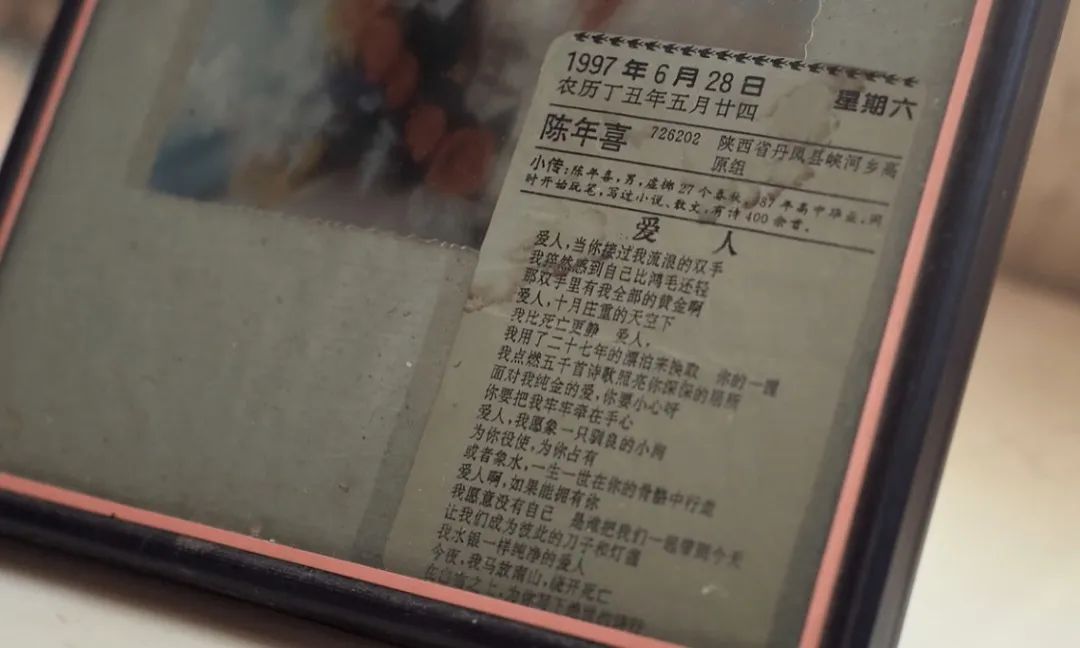 1997年6月28日 星期六
农历丁丑年五月廿四
陈年喜 726202 陕西省丹凤县峡河乡高
原组
小传:陈年喜,男,虚掷27个春秋,87年高中毕业,同
时开始玩笔,写过小说、散文,有诗400余首。
爱人
爱人,当你接过我流浪的双手
我猝然感到自己比鸿毛还轻
那双手里有我全部的黄金啊
爱人,十月庄重的天空下
我比死亡更静 爱人,
我用了二十七年的漂泊来换取 你的一握
我点燃五千首诗歌照亮你深深的居所
面对我纯金的爱,你要小心呀
你要把我牢牢牵在手心
爱人,我愿象一只驯良的小狗
为你役使,为你占有
或者象水,一生一世在你的骨骼中行走
爱人啊,如果能拥有你
我愿意没有自己 是谁把我们一起带到今天
让我们成为彼此的刀子和灯盏
我水银一样纯净的爱人
今夜,我马放南山,绕开死亡
在白雪之上,为你写下绝世的诗行